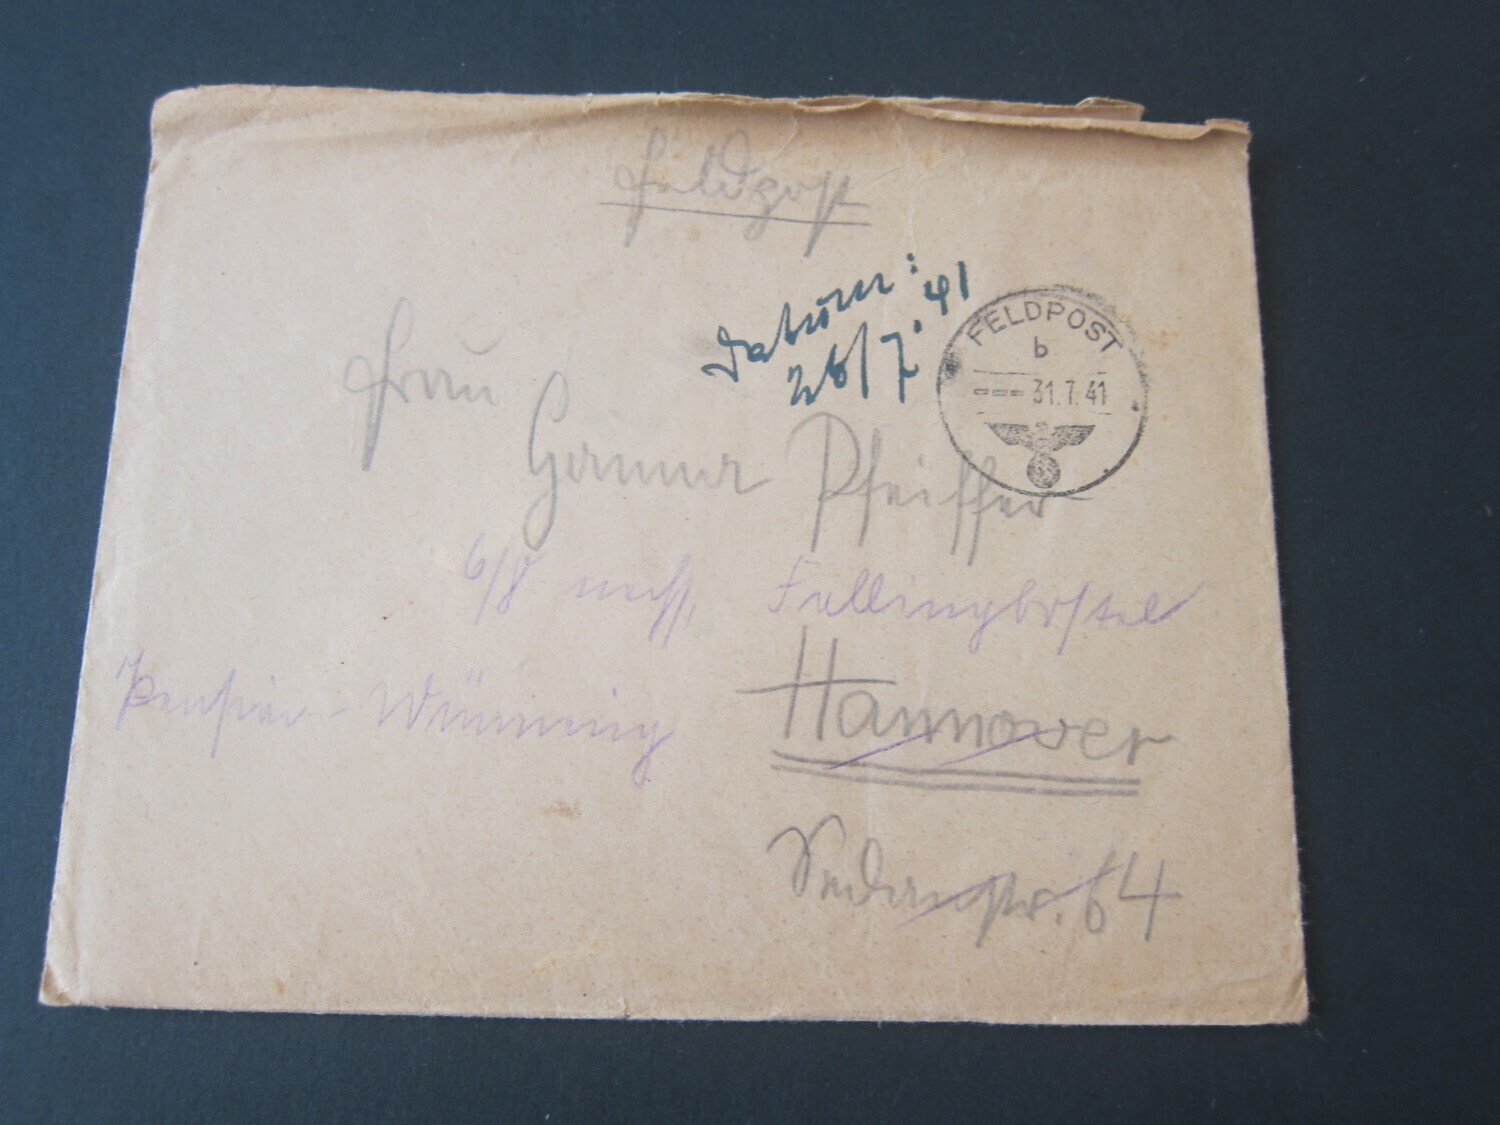 Feldpost
Datum:
26/7. 41
FELDPOST
b
31.7.41
Frau
Pfeiffer
6/8 nach Fallingbostel
Pension - Wünning
Hannover
Sedanstr. 64